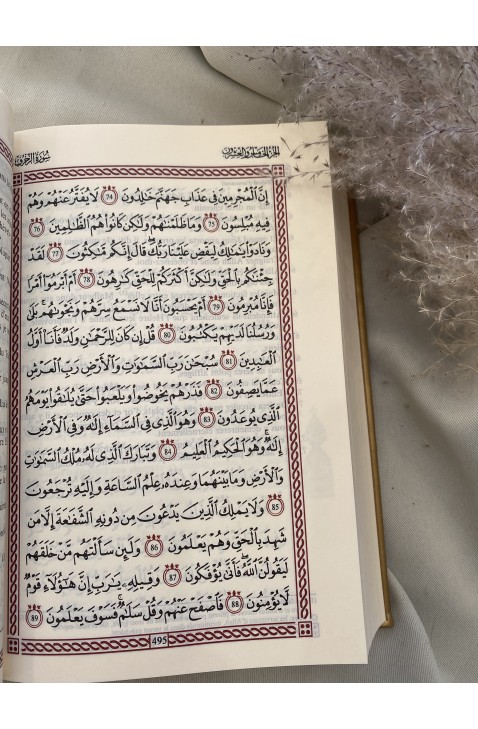 سورة الزخرف الجزء الخامس والعشرون
إِنَّ ٱلْمُجْرِمِينَ فِى عَذَابِ جَهَنَّمَ خَٰلِدُونَ 74 لَا يُفَتَّرُ عَنْهُمْ وَهُمْ
فِيهِ مُبْلِسُونَ 75 وَمَا ظَلَمْنَٰهُمْ وَلَٰكِن كَانُوا۟ هُمُ ٱلظَّٰلِمِينَ 76
وَنَادَوْا۟ يَٰمَٰلِكُ لِيَقْضِ عَلَيْنَا رَبُّكَ ۖ قَالَ إِنَّكُم مَّٰكِثُونَ 77 لَقَدْ
جِئْنَٰكُم بِٱلْحَقِّ وَلَٰكِنَّ أَكْثَرَكُمْ لِلْحَقِّ كَٰرِهُونَ 78 أَمْ أَبْرَمُوٓا۟ أَمْرًا
فَإِنَّا مُبْرِمُونَ 79 أَمْ يَحْسَبُونَ أَنَّا لَا نَسْمَعُ سِرَّهُمْ وَنَجْوَىٰهُم ۚ بَلَىٰ
وَرُسُلُنَا لَدَيْهِمْ يَكْتُبُونَ 80 قُلْ إِن كَانَ لِلرَّحْمَٰنِ وَلَدٌ فَأَنَا۠ أَوَّلُ
ٱلْعَٰبِدِينَ 81 سُبْحَٰنَ رَبِّ ٱلسَّمَٰوَٰتِ وَٱلْأَرْضِ رَبِّ ٱلْعَرْشِ
عَمَّا يَصِفُونَ 82 فَذَرْهُمْ يَخُوضُوا۟ وَيَلْعَبُوا۟ حَتَّىٰ يُلَٰقُوا۟ يَوْمَهُمُ
ٱلَّذِى يُوعَدُونَ 83 وَهُوَ ٱلَّذِى فِى ٱلسَّمَآءِ إِلَٰهٌ وَفِى ٱلْأَرْضِ
إِلَٰهٌ ۚ وَهُوَ ٱلْحَكِيمُ ٱلْعَلِيمُ 84 وَتَبَارَكَ ٱلَّذِى لَهُۥ مُلْكُ ٱلسَّمَٰوَٰتِ
وَٱلْأَرْضِ وَمَا بَيْنَهُمَا وَعِندَهُۥ عِلْمُ ٱلسَّاعَةِ وَإِلَيْهِ تُرْجَعُونَ
85 وَلَا يَمْلِكُ ٱلَّذِينَ يَدْعُونَ مِن دُونِهِ ٱلشَّفَٰعَةَ إِلَّا مَن
شَهِدَ بِٱلْحَقِّ وَهُمْ يَعْلَمُونَ 86 وَلَئِن سَأَلْتَهُم مَّنْ خَلَقَهُمْ
لَيَقُولُنَّ ٱللَّهُ ۖ فَأَنَّىٰ يُؤْفَكُونَ 87 وَقِيلِهِۦ يَٰرَبِّ إِنَّ هَٰٓؤُلَآءِ قَوْمٌ
لَّا يُؤْمِنُونَ 88 فَٱصْفَحْ عَنْهُمْ وَقُلْ سَلَٰمٌ ۚ فَسَوْفَ يَعْلَمُونَ 89
495